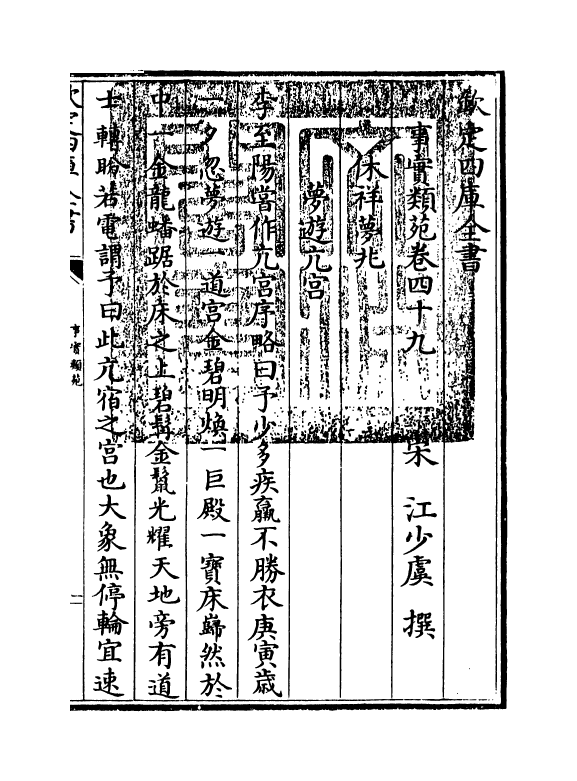 欽定四庫全書
事實類苑卷四十九
宋 江少虞 撰
休祥夢兆
夢遊亢宮
李至陽嘗作亢宮序略曰予少多疾羸不勝衣庚寅歲
一夕忽夢遊一道宮金碧明煥一巨殿一寶床巋然於
中一金龍蟠踞於床之上碧髯金鬛光耀天地旁有道
士轉盻若電謂予曰此亢宿之宮也大象無停輪宜速
欽定四庫全書
事實類苑